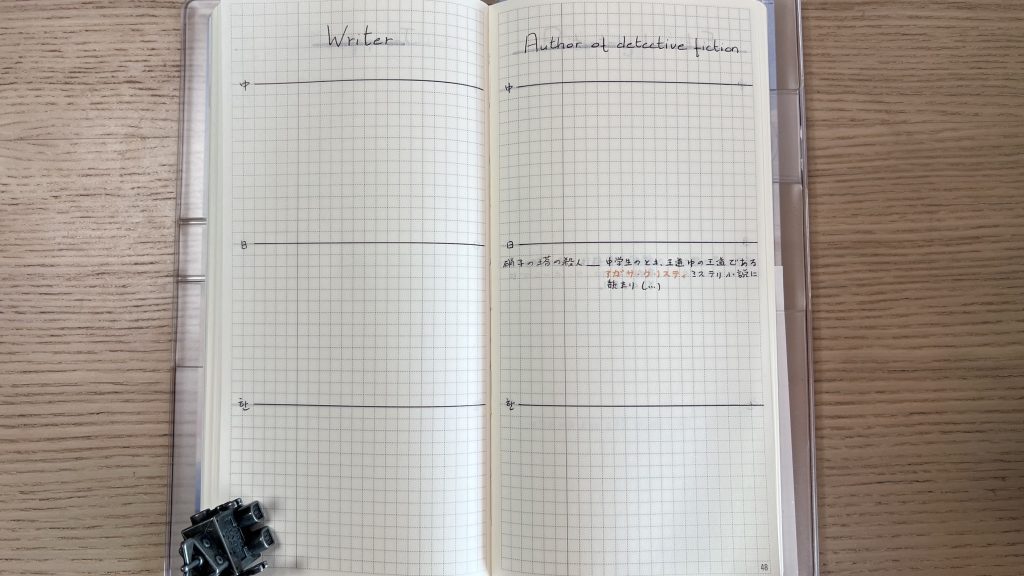 Writer
中
日
한
Author of detective fiction
中
日
硝子の塔の殺人 — 中学生のとき、王道中の王道である
アガサ・クリスティ、ミステリ小説に
始まり (...)
한
48